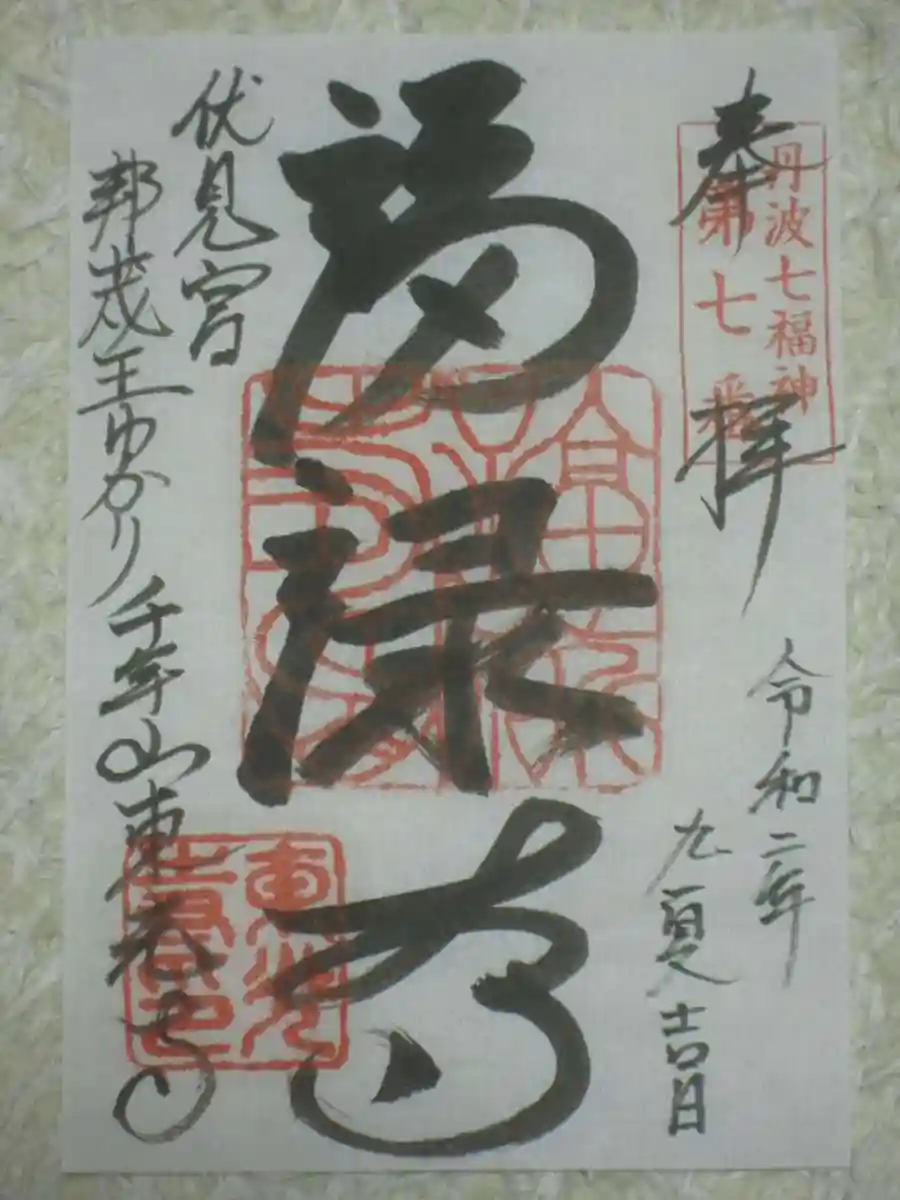 奉拝
丹波七福神
第七番
令和二年
九夏吉日
福禄寿
伏見宮
邦茂王ゆかり千年山東光寺